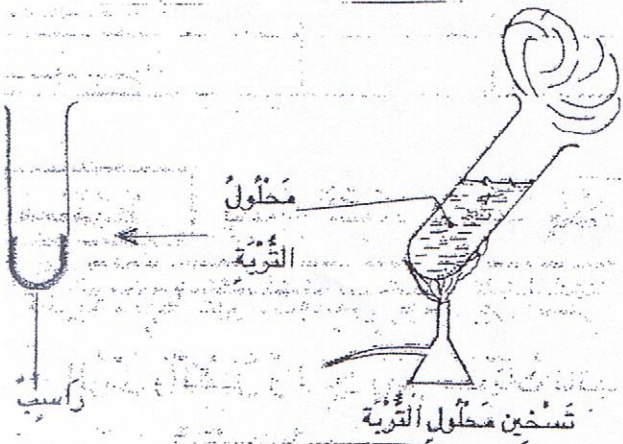 مَحْلُولُ
التُّرْبَةِ
رَاسِبٌ
تَسْخِين مَحْلُول التُّرْبَة